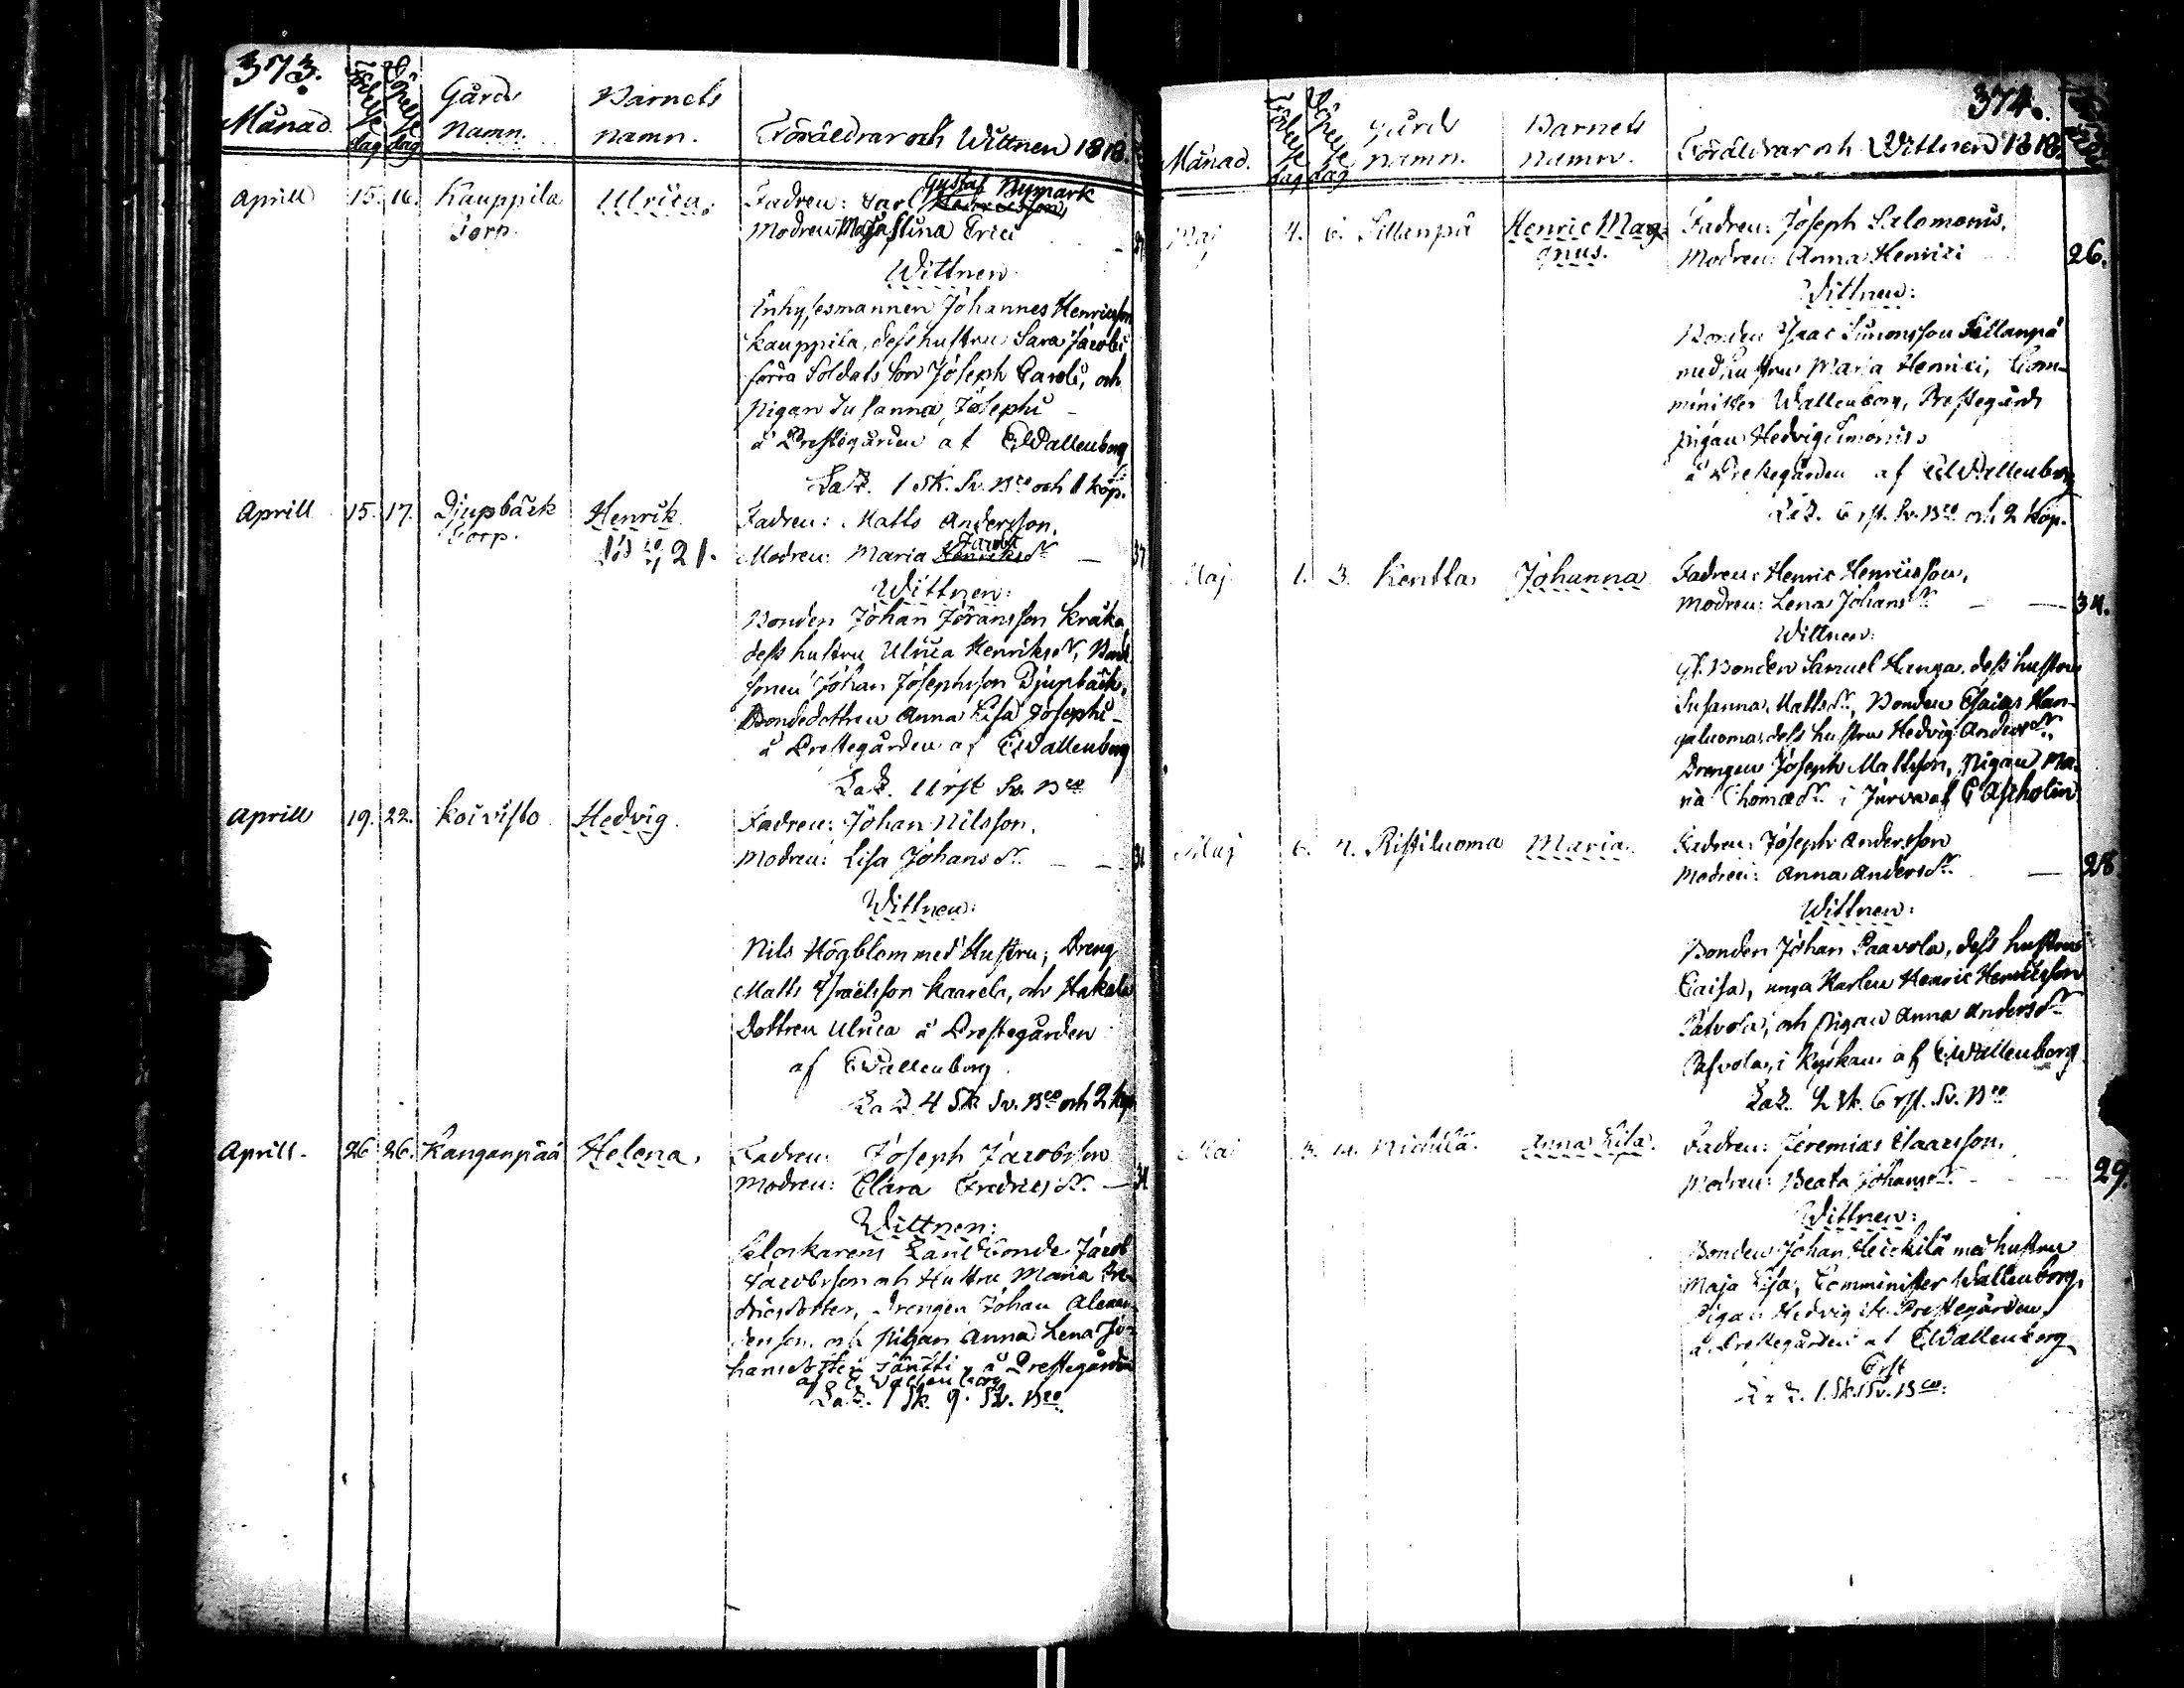 373.
Månad
Födelse dag
Döpelse dag
Gårds Namn.
Barnets namn.
Föräldrar och Wittnen 1818.
Aprill 15. 16. Kauppila Torp. Ulrica.
Fadren: Carl Gustaf Nymark
Modren Maja Stina Erici
Wittnen
Inhysesmannen Johannes Henricsson
Kauppila, dess hustru Sara Jacobi
förra Soldats Son Joseph Caroli, och
pigan Susanna Josephi
å Prestegården af E Wallenborg
LaZ. 1 Sk. Sv. Bco och 1 kop.
Aprill 15. 17. Djupbäck Torp. Henrik
21.
Fadren: Matts Andersson.
Modren: Maria Jacobi Henriksdr —
Wittnen:
Bonden Johan Jöransson Kråka
dess hustru Ulrica Henriksdr, Bond
sonen Johan Josephsson Djupbäck,
Bondedottren Anna Lisa Josephi
å Prestegården af E Wallenborg
LaZ. Sv. Bco
Aprill 19. 22. Koivisto Hedvig.
Fadren: Johan Nilsson.
Modren: Lisa Johansdr. — —
Wittnen:
Nils Högblom med Hustru, Dreng
Matts Israelsson Kaarela, och Hakola
Dottren Ulrica å Prestegården
af E Wallenborg
LaZ 4 Sk Sv. Bco och 2 kop
Aprill. 26 26. Kanganpää Helena.
Fadren: Joseph Jacobsson
Modren: Clara Fredricsdr. —
Wittnen:
Landbonde Jacob
Jacobsson och Hustru Maria Fre-
dricsdotter, Drengen Johan Alexan-
dersson, och pigan Anna Lena Jo-
hansdotter Säntti, å Prestegården
af E Wallenborg
LaZ. 1 Sk. 9. Sv. Bco
374.
Månad.
Födelse dag
Döpelse dag
Gårds namn.
Barnets namn.
Föräldrar och Wittnen 1818.
Maj 4. 6. Sillanpä Henric Mag-
gnus.
Fadren: Joseph Salomonis.
Modren: Anna Henrici 26.
Wittnen:
Bonden Isaac Simonsson Sillanpä
med hustru Maria Henrici, Com-
minister Wallenborg, Prestegårds
pigan Hedvig Simonis
å Prestegården af E Wallenborg
LaZ. 6 rst. Sv. Bco och 2 kop.
Maj 1. 3. Kentta Johanna
Fadren: Henric Henricsson,
Modren: Lena Johansdr — — 34.
Wittnen:
Gl. Bonden Samuel Hanga, dess hustru
Susanna Mattsdr, Bonden Esaias Han-
galuoma, dess hustru Hedvig Andersdr.,
Drengen Joseph Mattsson, Pigan Ma-
ria Thomædr. i Jurva af E Aspholin
Maj 6. 7. Ristiluoma Maria.
Fadren: Joseph Andersson
Modren: Anna Andersdr. — 28
Wittnen:
Bonden Johan Paavola, dess hustru
Caisa, unga Karlen Henric Henricsson
Palvola, och pigan Anna Andersdr
Pafvola, i Kyrkan af E Wallenborg
LaZ. 2 Sk. 6 rst. Sv. Bco
Maj 3. Anna Lisa.
Fadren: Jeremias Isaacsson.
Modren: Beata Johansdr. 29.
Wittnen:
Bonden Johan Heickilä med hustru
Maja Lisa, Comminister Wallenborg,
Pigan Hedvig Prestegården,
å Prestegården af E Wallenborg
6 rst
LaZ. 1. Sk. Sv. Bco.